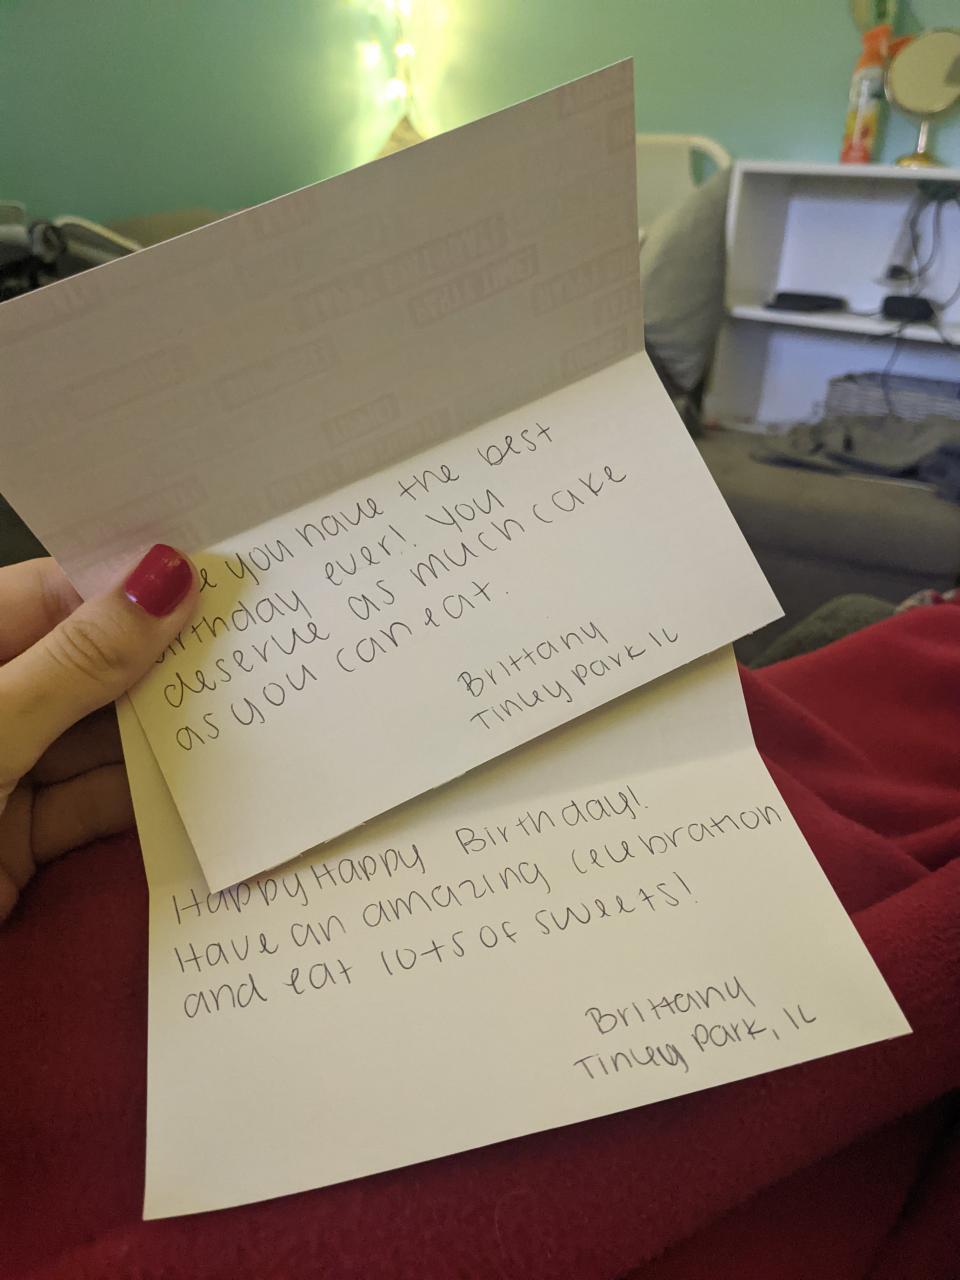 you have the best
birthday ever! You
deserve as much cake
as you can eat.
Brittany
Tinley Park IL
Happy Happy Birthday!
Have an amazing celebration
and eat lots of sweets!
Brittany
Tinley Park, IL